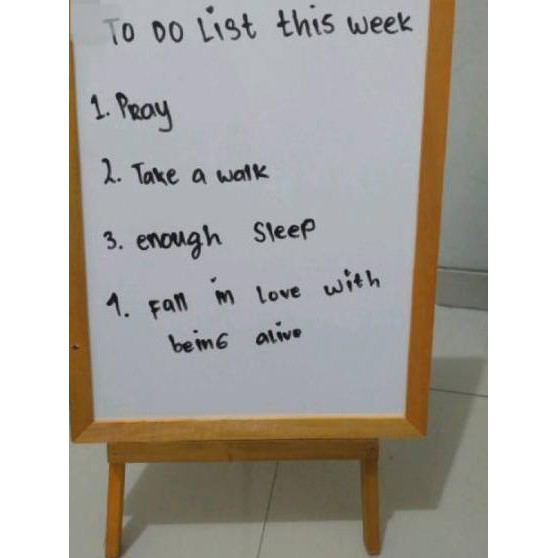 TO DO List this week
1. Pray
2. Take a walk
3. enough sleep
4. Fall in love with
being alive